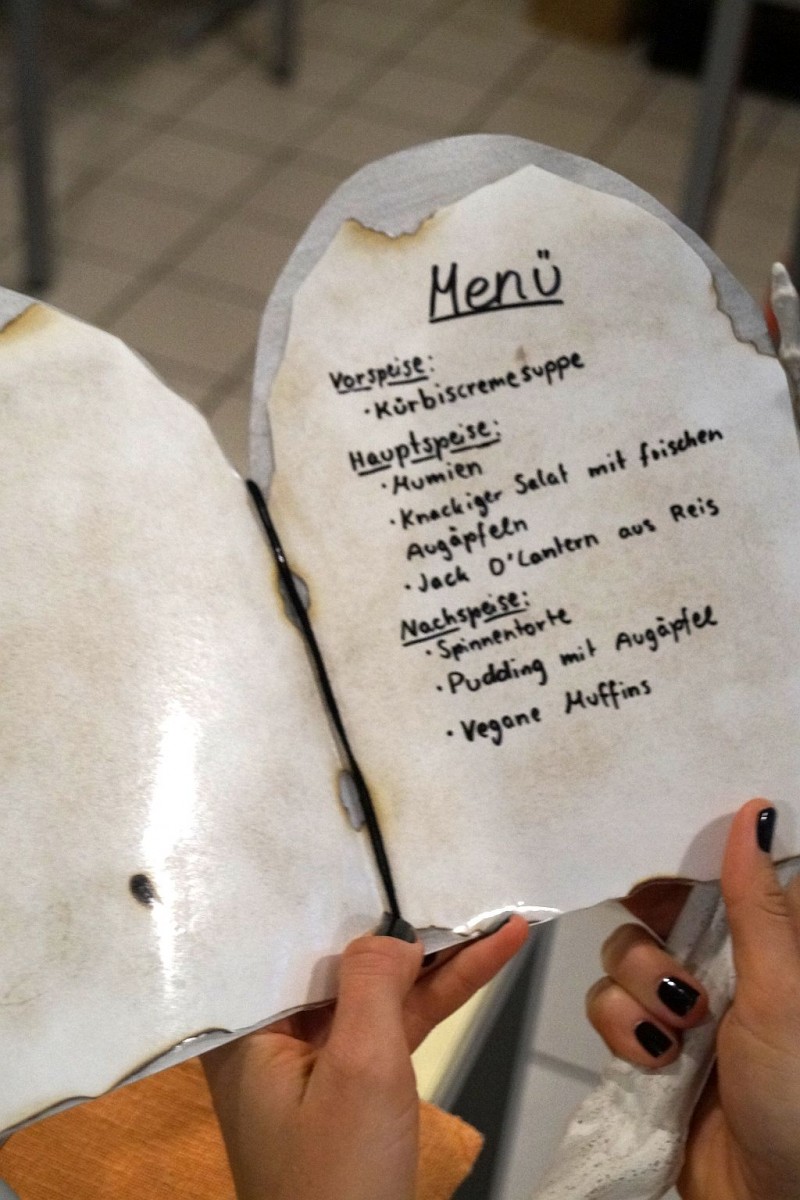 Menü
Vorspeise:
· Kürbiscremesuppe
Hauptspeise:
· Mumien
· Knackiger Salat mit frischen
Augäpfeln
· Jack O'Lantern aus Reis
Nachspeise:
· Spinnentorte
· Pudding mit Augäpfel
· Vegane Muffins